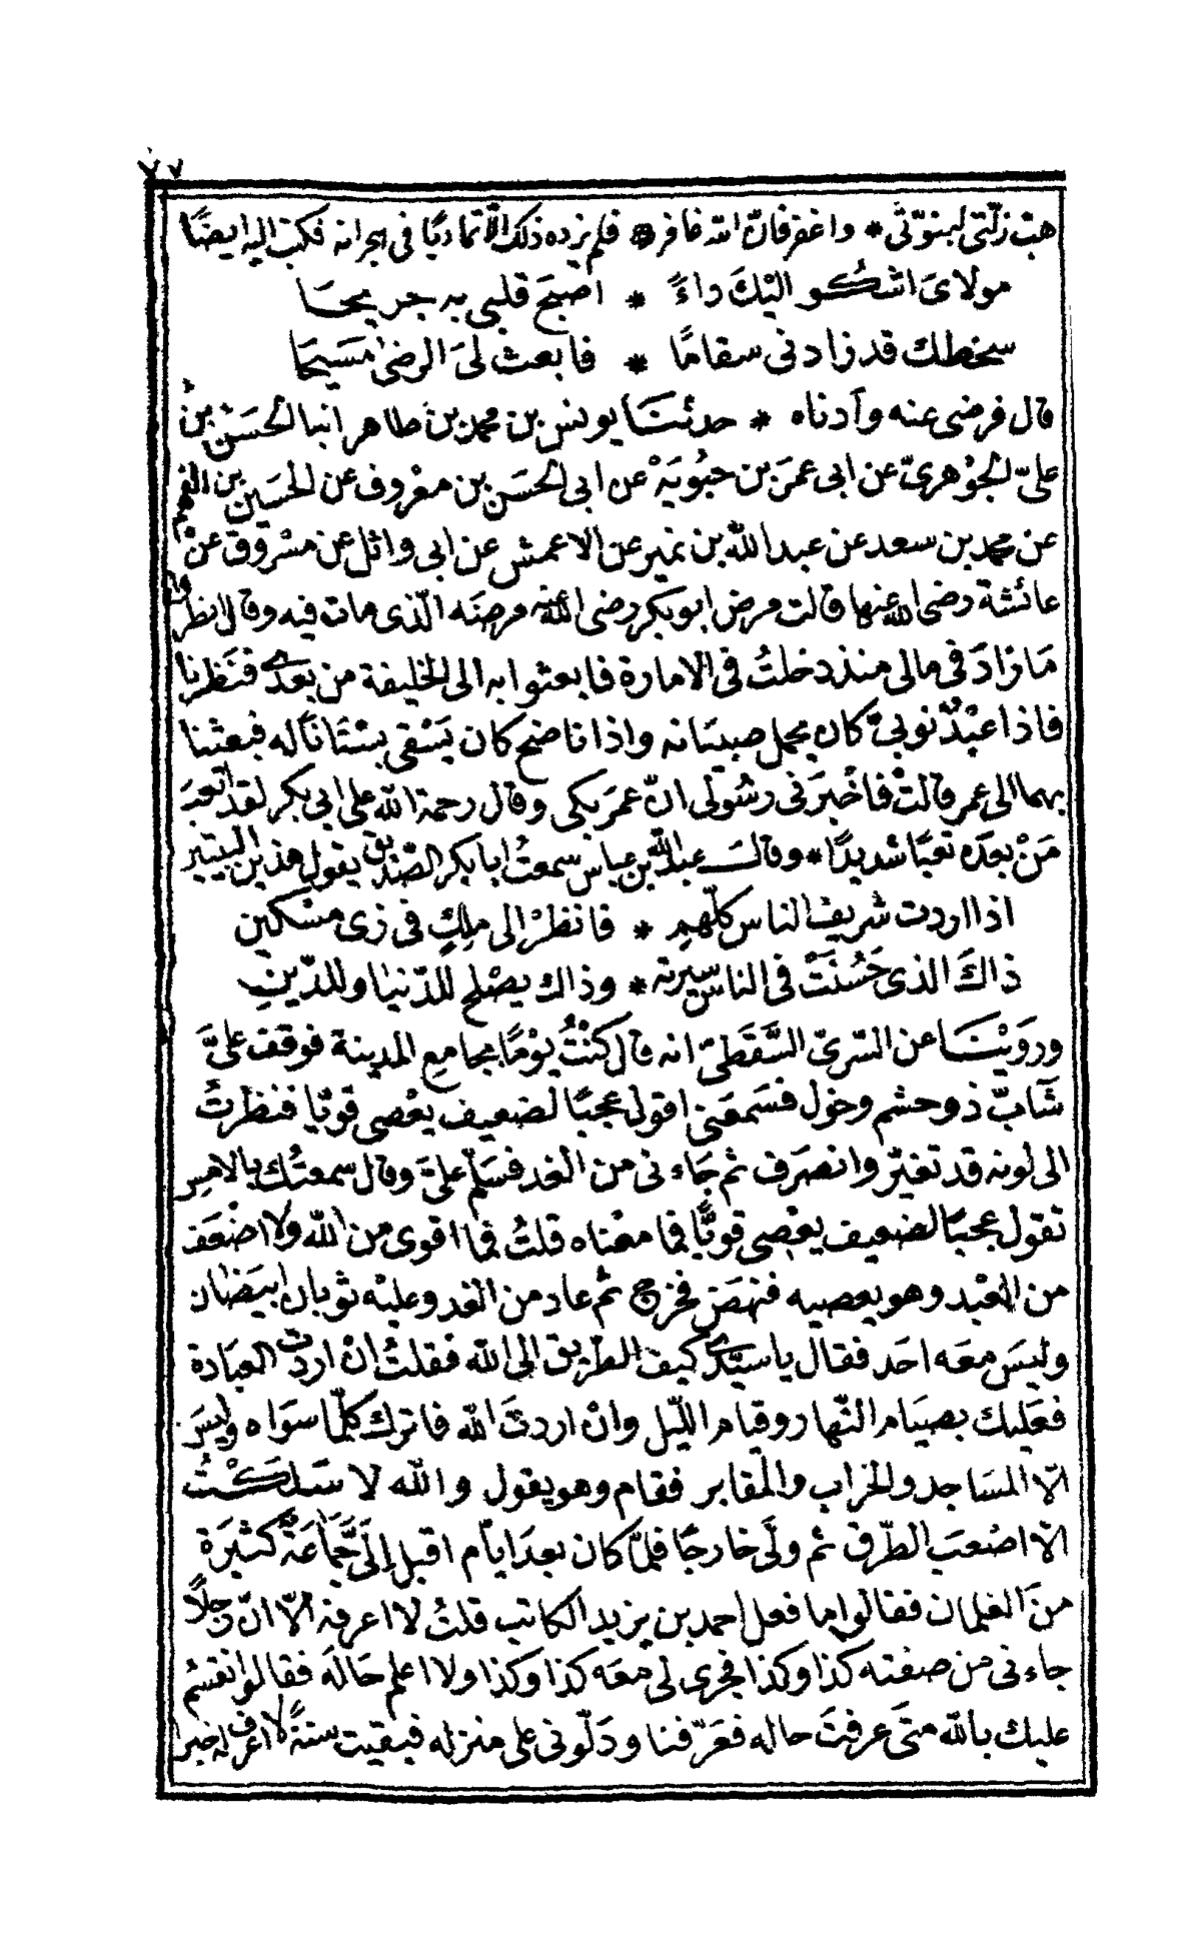 ٧٧
هب زلّتي لبنوّتي * واغفر فانّ الله غافر * فلم يزده ذلك الّا تماديًا في هجرانه فكتب اليه ايضًا
مولاىَ اشكو اليْكَ داءً * اصْبحَ قلبي به جريحَا
سخطك قد زادني سقامًا * فابعث لىَ الرضىٰ مَسيحَا
قال فرضى عنه وآدناه * حدثنَا يونس بن محمد بن طاهر انبا الحسَن بن
علىّ الجوْهرىّ عن ابى عمرَ بن حبُويَهْ عن ابى الحسَن بن معْروف عن الحسَين بن الفهم
عن محمد بن سعد عن عبد الله بن نمير عن الاعمش عن ابى وائل عن مسْروق عنْ
عائشة رضى الله عنها قالت مرض ابو بكر رضى الله عنه مرضَه الّذى مات فيه وقال انظروا
مَا زادَ في مالى منذ دخلتُ في الامارة فابعثوا به الى الخليفة من بعدى فنَظرنا
فاذا عبْدٌ نوبىّ كان يحمل صبيَانه واذا ناضح كان يَسْقى بسْتَانًا له فبعثنا
بهما الى عمر قالتْ فاخْبرَنى رسُولى انّ عمرَ بكى وقال رحمة الله على ابى بكر لقد اتْعبَ
مَنْ بعدَه تعبًا شديدًا * وقالَ عبد الله بن عباس سمعتُ ابا بكر الصّدّيق يقول هذين البيتين
اذا اردت شريف الناس كلّهمِ * فانظرْ الى ملِكٍ في زى مسْكين
ذاكَ الذى حَسُنَتْ في الناس سيرته * وذاك يصْلح للدّنيا وللدّينِ
وروَيْنَا عن السّرىّ السَّقَطىّ انه قال كنْتُ يوْمًا بجامعِ المدينة فوقف علىَّ
شَابّ ذو حشم وخول فسَمعَنى اقول عجبًا لضعيف يعْصى قويّا فنظرتُ
الى لونه قد تغيّر وانصَرَف ثم جَاءنى من الغد فسَلّم علىَّ وقال سمعتُك بالامْسِ
تقول عجبًا لضعيف يعْصى قويًّا فما معْناه قلتُ فما اقوى من الله ولا اضْعَف
من العبْد وهو يعصيه فنهضَ فخرج ثم عاد من الغد وعليْه ثوبان ابيَضان
وليسَ معَه احَد فقال يا سيّدى كيف الطّريق الى الله فقلتُ انْ اردتَ العبَادة
فعَليك بصيَام النّهار وقيام اللّيل وانْ اردتَ الله فاترك كلّما سوَاه وليسَ
الّا المسَاجد والخراب والمقابر فقام وهو يقول والله لا سَلكْتُ
الّا اصْعبَ الطّرق ثم ولّى خارجًا فلمّا كان بعدَ ايّام اقبل اِلَىَّ جَمَاعَةٌ كثيرَة
منَ الغلمان فقالوا ما فعل احمد بن يزيد الكاتب قلتُ لا اعرفه الّا انّ رَجلًا
جاءنى من صفته كذا وكذا فجرى لى معَه كذا وكذا ولا اعلم حَالَه فقالوا نقسْم
عليك بالله متَى عرفتَ حاله فعَرّفنا ودَلّونى على منزله فبقيت سنةً لا اعرف له خبرا